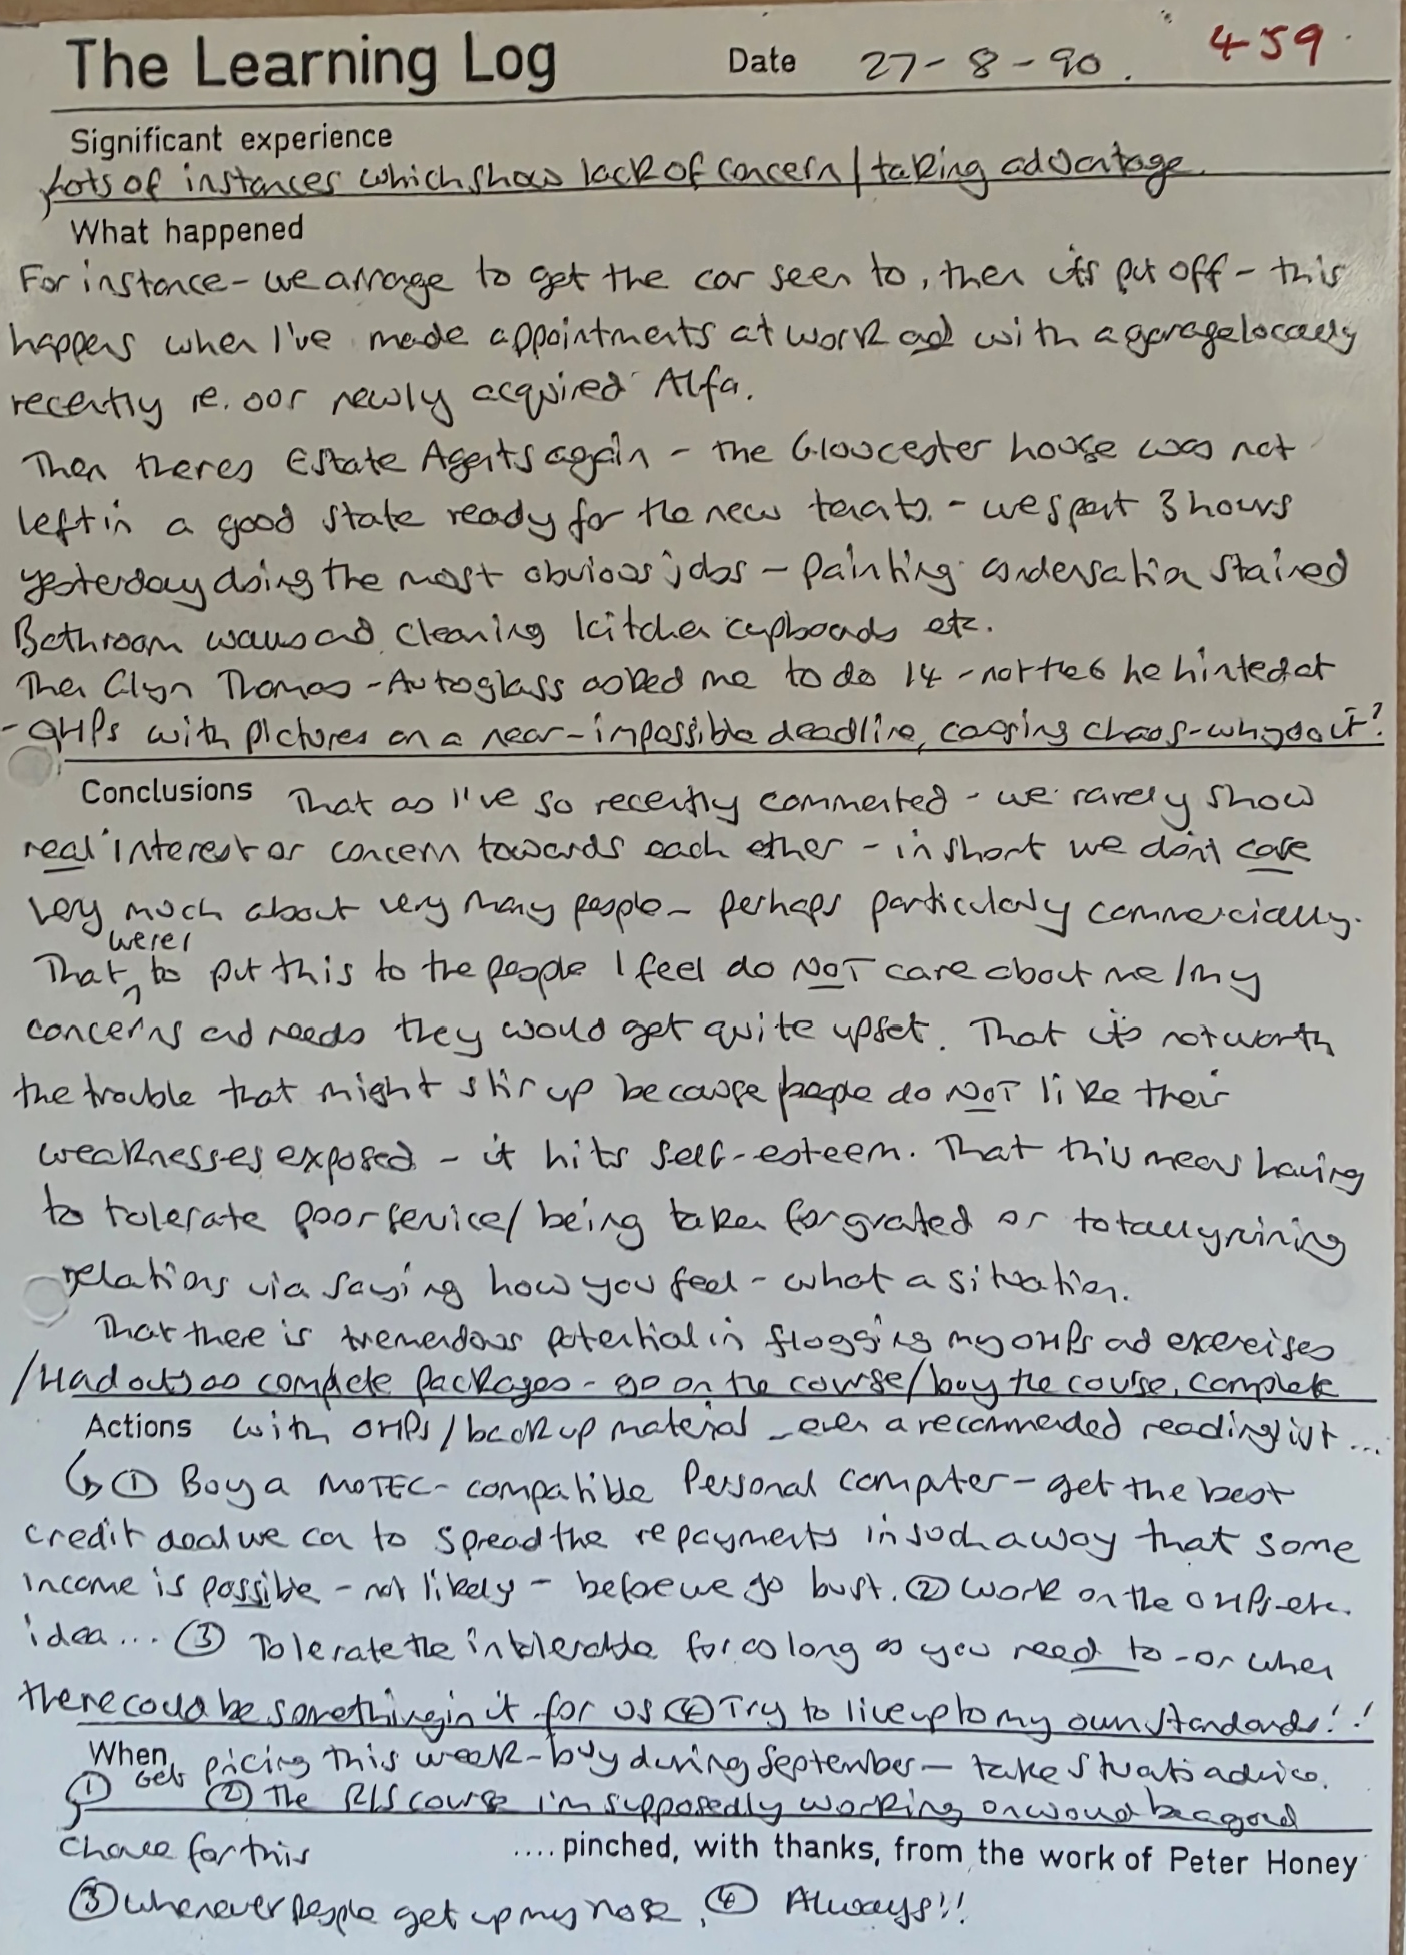 The Learning Log Date 27-8-90. 459.
Significant experience
Lots of instances which show lack of concern/taking advantage.
What happened
For instance - we arrange to get the car seen to, then it's put off - this
happens when I've made appointments at work and with a garage locally
recently re. our newly acquired Alfa.
Then theres Estate Agents again - the Gloucester house was not
left in a good state ready for the new tenants. - we spent 3 hours
yesterday doing the most obvious jobs - painting condensation stained
Bathroom walls and cleaning kitchen cupboards etc.
Then Glyn Thomas - Autoglass asked me to do 14 - not the 6 he hinted at
- OHPs with pictures on a near-impossible deadline, causing chaos - why do it?
Conclusions That as I've so recently commented - we rarely show
real interest or concern towards each other - in short we don't care
very much about very many people - perhaps particularly commercially.
were I
That, to put this to the people I feel do NOT care about me/my
concerns and needs they would get quite upset. That it's not worth
the trouble that might stir up because people do NOT like their
weaknesses exposed - it hits self-esteem. That this means having
to tolerate poor service/being taken for granted or totally ruining
relations via saying how you feel - what a situation.
That there is tremendous potential in flogging my OHPs and exercises
/Handouts as complete packages - go on the course/buy the course, complete
Actions with OHPs/back up material - even a recommended reading list ...
↳ ① Buy a MOTEC-compatible Personal computer - get the best
credit deal we can to spread the repayments in such a way that some
income is possible - not likely - before we go bust. ② Work on the OHPs etc.
idea... ③ Tolerate the intolerable for as long as you need to - or when
there could be something in it for us ④ Try to live up to my own standards!!
When
① Get pricing this week - buy during September - take Stuart's advice.
② The RLS course I'm supposedly working on would be a good
chance for this
.... pinched, with thanks, from the work of Peter Honey
③ Whenever people get up my nose. ④ Always!!